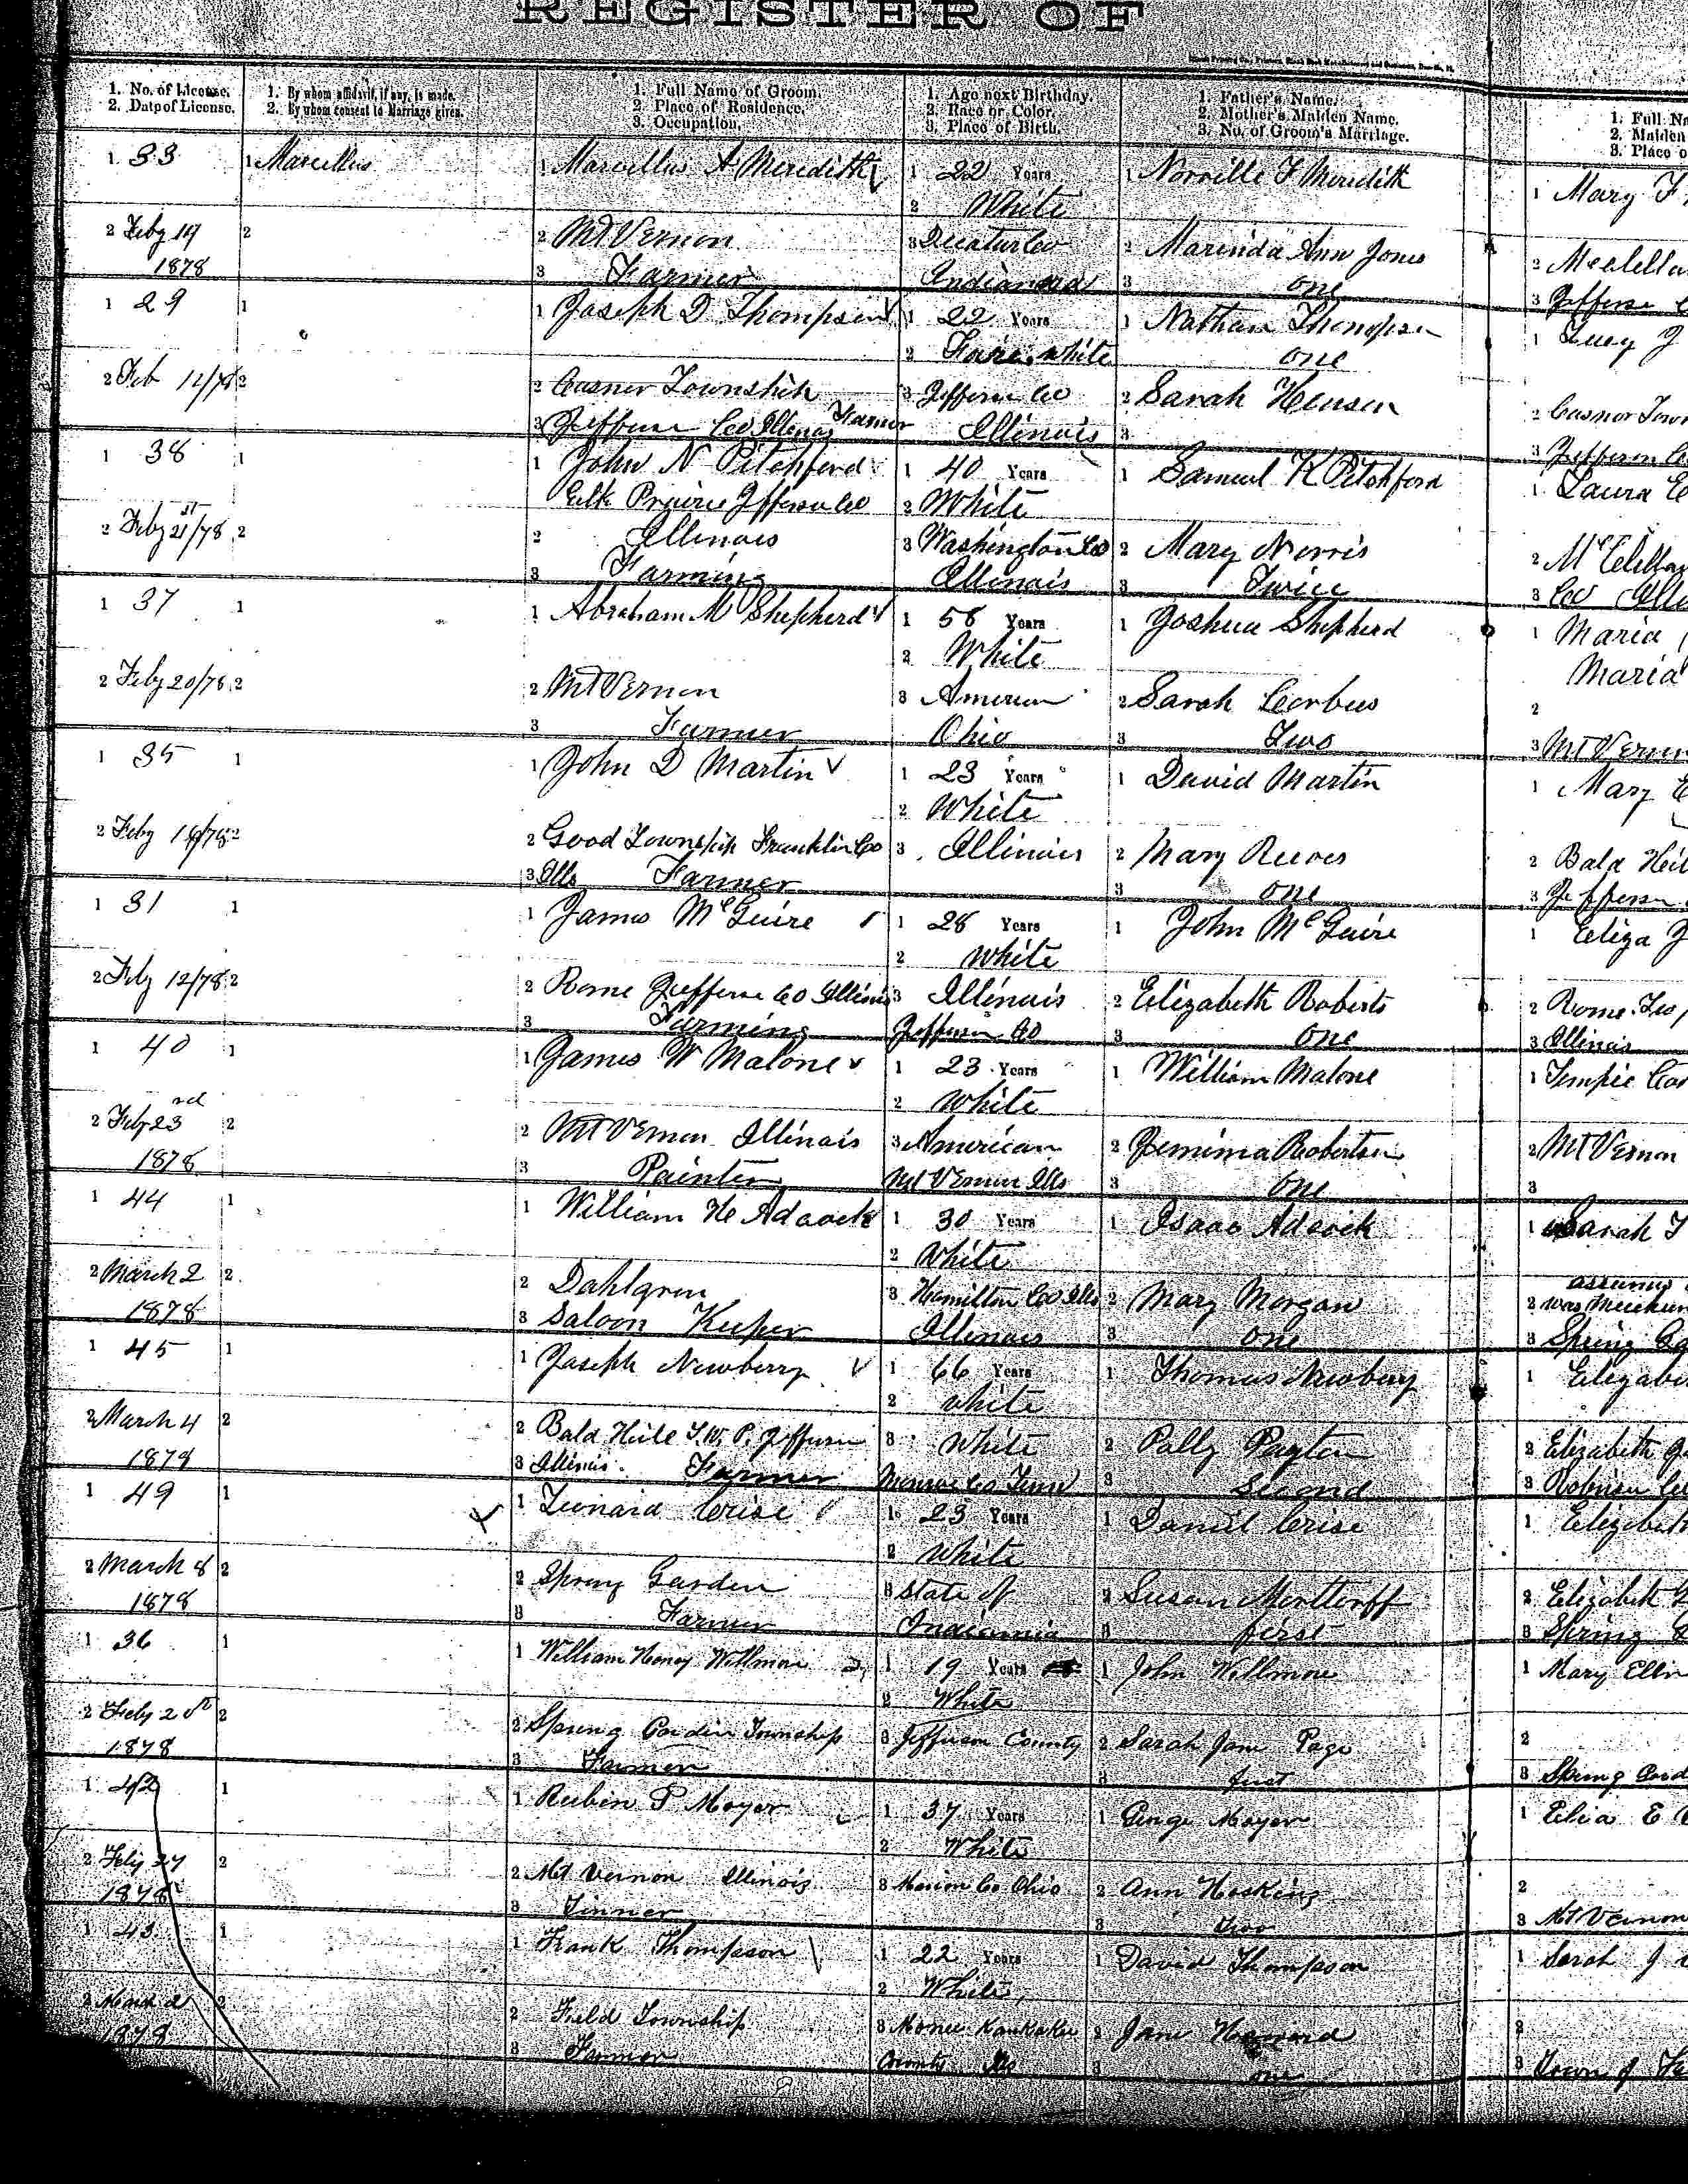 REGISTER OF
1. No. of License.
2. Date of License.
1. By whom affidavit, if any, is made.
2. By whom consent to Marriage given.
1. Full Name of Groom.
2. Place of Residence.
3. Occupation.
1. Age next Birthday.
2. Race or Color.
3. Place of Birth.
1. Father's Name.
2. Mother's Maiden Name.
3. No. of Groom's Marriage.
1. Full Na
2. Maiden
3. Place o
1 33 1 Marcellus 1 Marcellus A Meredith 1 22 Years 1 Norville F Meredith 1 Mary F
2 White
2 Feby 19 2 2 Mt Vernon 3 Decatur Co 2 Marinda Ann Jones 2 McClella
1878 3 Farmer Indiana 3 one 3 Jefferson C
1 29 1 1 Joseph D Thompson 1 22 Years 1 Nathan Thompson 1 Lucy J
2 Fair white one
2 Feb 12/78 2 2 Casner Township 3 Jefferson Co 2 Sarah Henson 2 Casner Town
3 Jefferson Co Illinois Farmer Illinois 3 3 Jefferson Co
1 38 1 1 John N Pitchford 1 40 Years 1 Samuel K Pitchford 1 Laura E
Elk Prairie Jefferson Co 2 White
2 Feby 21st/78 2 2 Illinois 3 Washington Co 2 Mary Norris 2 McClellan
3 Farming Illinois 3 Twice 3 Co Illi
1 37 1 1 Abraham M Shepherd 1 58 Years 1 Joshua Shepherd 1 Maria
2 White Maria
2 Feby 20/78 2 2 Mt Vernon 3 American 2 Sarah Corbus 2
3 Farmer Ohio 3 Two 3 Mt Vernon
1 35 1 1 John D Martin 1 23 Years 1 David Martin 1 Mary E
2 White
2 Feby 2 2 Good Township Franklin Co 3 Illinois 2 Mary Reeves 2 Bald Hill
3 Ills Farmer 3 one 3 Jefferson
1 31 1 1 James McGuire 1 28 Years 1 John McGuire 1 Eliza J
2 white
2 Feby 12/78 2 2 Rome Jefferson Co Illinois 3 Illinois 2 Elizabeth Roberts 2 Rome
3 Farming Jefferson Co 3 one 3 Illinois
1 40 1 1 James W Malone 1 23 Years 1 William Malone 1 Tempie
2 White
2 Feby 23rd 2 2 Mt Vernon Illinois 3 American 2 Jemima Robertson 2 Mt Vernon
1878 3 Painter Mt Vernon Ills 3 one 3
1 44 1 1 William H Adcock 1 30 Years 1 Isaac Adcock 1 Sarah
2 White
2 March 2 2 2 Dahlgren 3 Hamilton Co Ills 2 Mary Morgan 2 was
1878 3 Saloon Keeper Illinois 3 one 3 Spring Ga
1 45 1 1 Joseph Newberry 1 66 Years 1 Thomas Newberry 1 Elizabe
2 white
2 March 4 2 2 Bald Hill T.W.P. Jefferson 3 White 2 Polly Payton 2 Elizabeth
1878 3 Illinois Farmer Monroe Co Tenn 3 Second 3 Robinson
1 49 1 1 Leonard Crise 1 23 Years 1 Daniel Crise 1 Elizabeth
2 White
2 March 8 2 2 Spring Garden 3 State of 2 Susan 2 Elizabeth
1878 3 Farmer Indianna 3 first 3 Spring
1 36 1 1 William Henry Willmore 1 19 Years 1 John Willmore 1 Mary Ellen
2 White
2 Feby 20th 2 2 Spring Garden Township 3 Jefferson County 2 Sarah Jane Page 2
1878 3 Farmer 3 first 3 Spring Gard
1 42 1 1 Rubin P Moyer 1 37 Years 1 George Moyer 1 E
2 White
2 Feby 27 2 2 Mt Vernon Illinois 3 Marion Co Ohio 2 Ann Hoskins 2
1878 3 Tinner 3 two 3 Mt Vernon
1 43 1 1 Frank Thompson 1 22 Years 1 David Thompson 1 Sarah J
2 White
2 March 2 2 2 Field Township 3 Kankakee 2 Jane 2
1878 3 Farmer County Ills 3 one 3 Town of